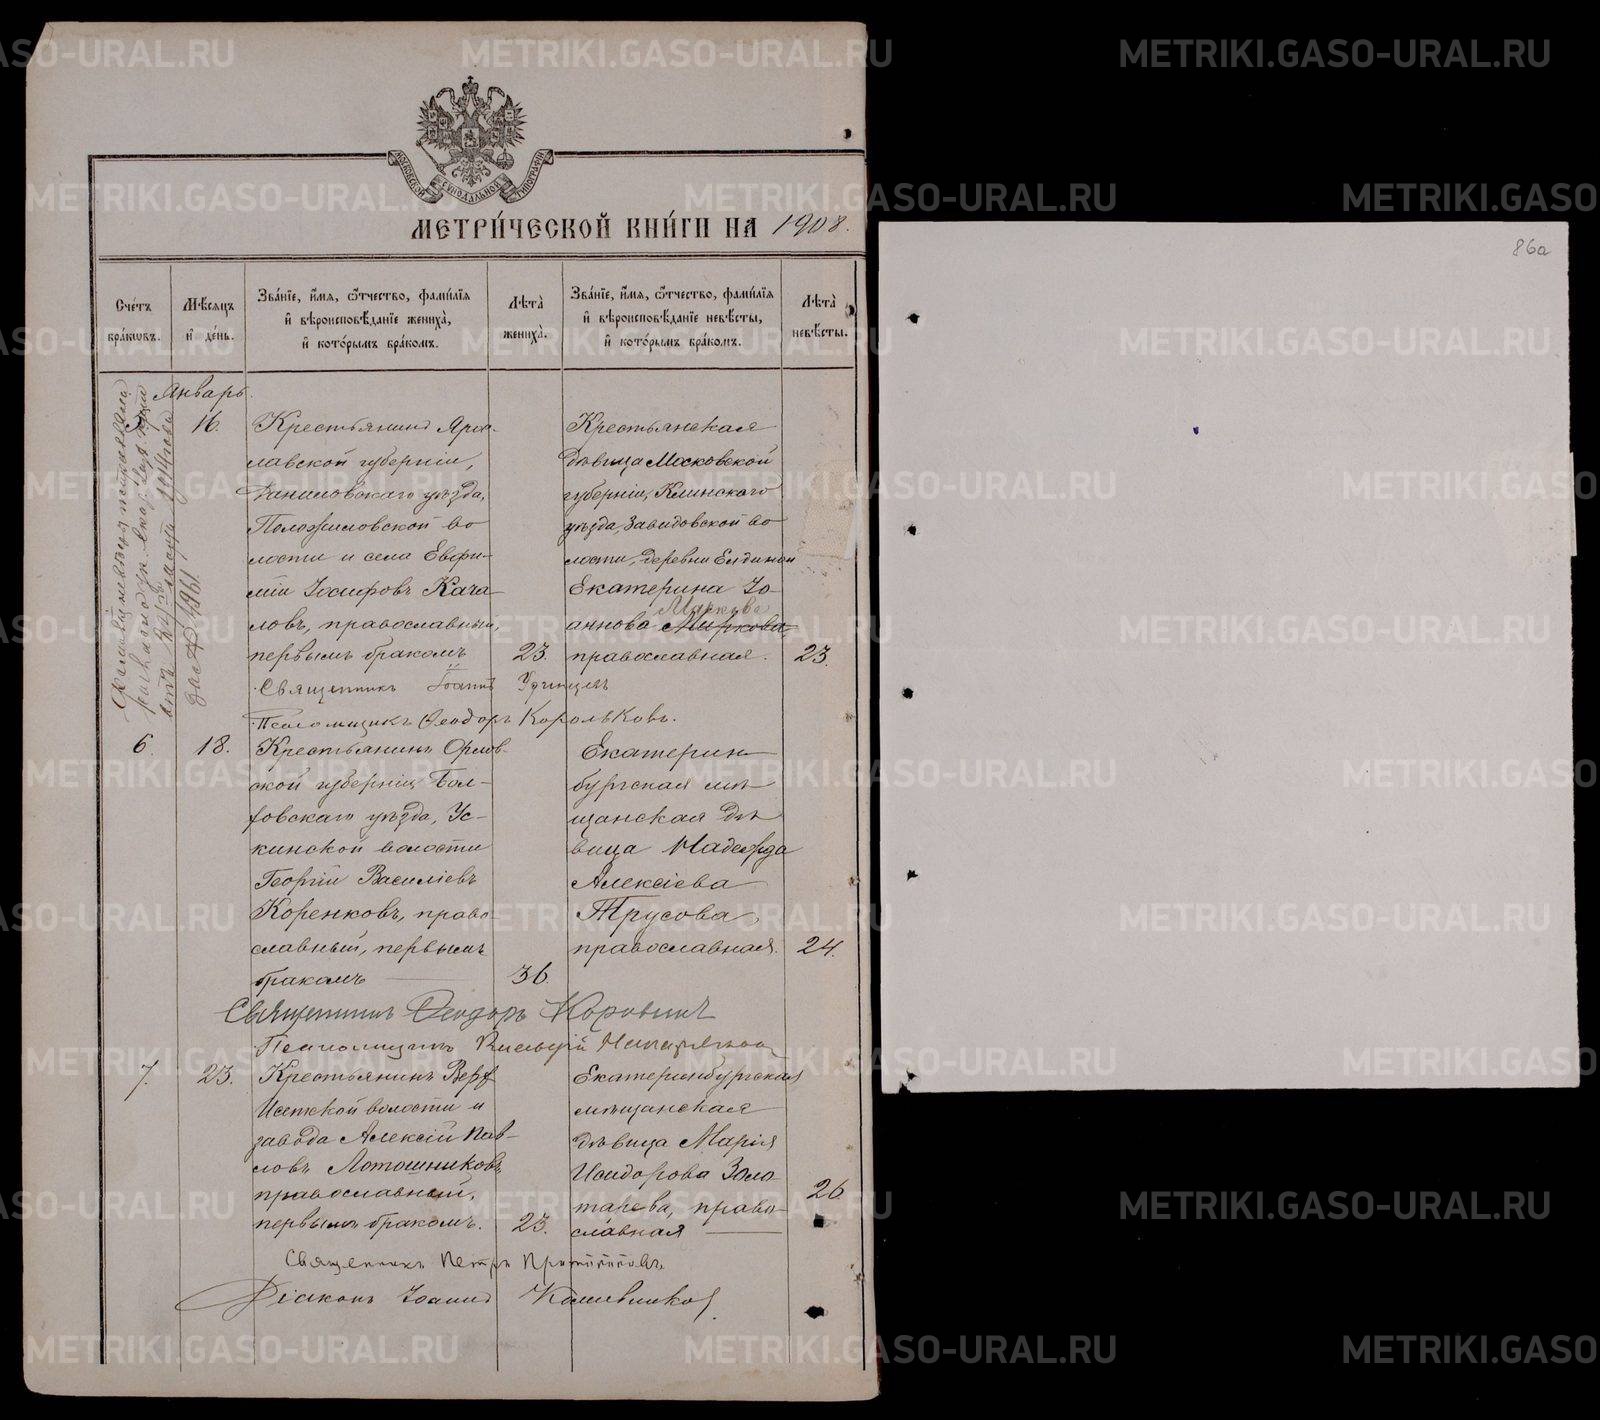 МОСКОВСКОЙ СѴНОДАЛЬНОЙ ТИПОГРАФІИ
МЕТРИ́ЧЕСКОЙ КНИ́ГИ НА 1908.
Сче́тъ бра́кѡвъ.
Мѣ́сяцъ и҆ де́нь.
Зва́нїе, и҆́мѧ, ѻ҆́тчество, фами́лїѧ и҆ вѣроисповѣ́данїе жениха̀, и҆ кото́рымъ бра́комъ.
Лѣта̀ жениха̀.
Зва́нїе, и҆́мѧ, ѻ҆́тчество, фами́лїѧ и҆ вѣроисповѣ́данїе невѣ́сты, и҆ кото́рымъ бра́комъ.
Лѣта̀ невѣ́сты.
Январь.
16.
Крестьянинъ Яро-
славской губерніи,
Даниловскаго уѣзда,
во
лости и села Евфи-
мій Іосифовъ Кача-
ловъ, православный,
первымъ бракомъ
23.
Крестьянская
дѣвица Московской
губерніи, Клинскаго
уѣзда, Завидовской во
лости, деревни
Екатерина Іо-
Маркова
аннова Миркова,
православная.
23.
Священникъ Іоаннъ Удинцевъ
Псаломщикъ Ѳеодоръ Корольковъ.
6.
18.
Крестьянинъ Орлов-
ской губерніи, Бол-
ховскаго уѣзда, Ус-
кинской волости
Георгій Василіевъ
Коренковъ, право-
славный, первымъ
бракомъ
36.
Екатерин-
бургская мѣ-
щанская дѣ-
вица Надежда
Алексіева
Трусова
православная.
24.
Священникъ Ѳеодоръ Коровинъ
Псаломщикъ
7.
23.
Крестьянинъ Верх-
Исетской волости и
завода Алексій Пав-
ловъ Лотошниковъ
православный,
первымъ бракомъ.
23.
Екатеринбургская
мѣщанская
дѣвица Марія
Исидорова Золо-
тарева, право-
славная
26
Священникъ Петръ
Діаконъ Іоаннъ
86а
METRIKI.GASO-URAL.RU